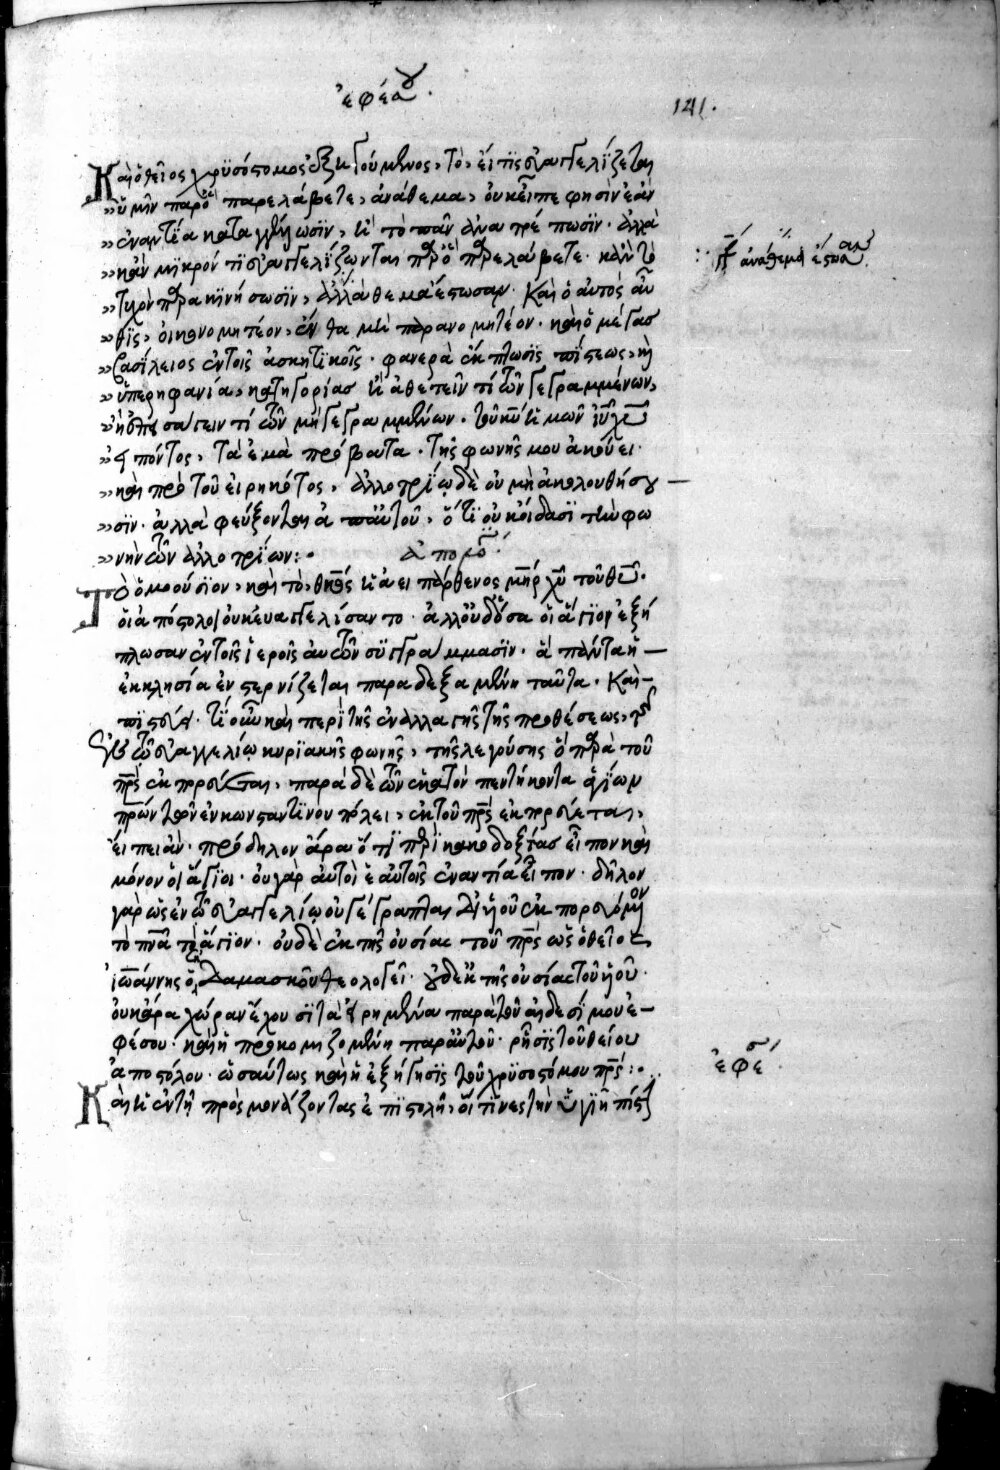 ἐφέσου.
141.
Καὶ ὁ θεῖος χρυσόστομος ἐξηγούμενος, τὸ, εἴ τις εὐαγγελίζεται
ὑμῖν παρ' ὃ παρελάβετε, ἀνάθεμα, οὐκ εἶπε φησὶν ἐὰν
ἐναντία καταγγέλωσιν, ἢ τὸ πᾶν ἀνατρέπωσιν. ἀλλὰ
κἂν μικρόν τι εὐαγγελίζωνται παρ' ὃ παρελάβετε. κἂν τὸ
τυχὸν παρακινήσωσιν, ἀνάθεμα ἔστωσαν. Καὶ ὁ αὐτὸς αὖ
θις, οἰκονομητέον, ἔνθα μὴ παρανομητέον. καὶ ὁ μέγας
βασίλειος ἐν τοῖς ἀσκητικοῖς. φανερὰ ἔκπτωσις πίστεως, καὶ
ὑπερηφανίας κατηγορία, ἢ ἀθετεῖν τὶ τῶν γεγραμμένων,
ἢ ἐπεισάγειν τὶ τῶν μὴ γεγραμμένων. τοῦ κυρίου ἡμῶν ἰησοῦ
εἰπόντος, Τὰ ἐμὰ πρόβατα. τῆς φωνῆς μου ἀκούει.
καὶ πρὸ τοῦ εἰρηκότος, ἀλλοτρίῳ δὲ οὐ μὴ ἀκολουθήσου
σιν. ἀλλὰ φεύξονται ἀπ' αὐτοῦ, ὅτι οὐκ οἴδασι τὴν φω
νὴν τῶν ἀλλοτρίων:
Τὸ ὁμοούσιον, καὶ τὸ
οἱ ἀπόστολοι οὐκ εὐαγγελίσαντο. ἀλλ' οἱ ἅγιοι ἐξή
πλωσαν ἐν τοῖς ἱεροῖς αὐτῶν συγγράμμασιν. ἃ πάντα ἡ
ἐκκλησία ἐνστερνίζεται παραδεξαμένη ταῦτα. Καὶ
πιστεύει. τί οὖν καὶ περὶ τῆς ἐναλλαγῆς τῆς προθέσεως,
ἐν τῷ εὐαγγελίῳ κυριακῆς φωνῆς, τῆς λεγούσης ὃ παρὰ τοῦ
πατρὸς ἐκπορεύεται, παρὰ δὲ τῶν ἑκατὸν πεντήκοντα ἁγίων
πατέρων τῶν ἐν κωνσταντίνου πόλει, ἐκ τοῦ πατρὸς ἐκπορεύεται,
εἴποι ἄν. πρόδηλον ἄρα ὅτι
μόνον οἱ ἅγιοι. οὐ γὰρ αὐτοὶ ἑαυτοῖς ἐναντία εἶπον. δῆλον
γὰρ ὡς ἐν τῷ εὐαγγελίῳ οὐ γέγραπται δι' υἱοῦ ἐκπορευόμενον
τὸ πνεῦμα τὸ ἅγιον. οὐδὲ ἐκ τῆς οὐσίας τοῦ πατρὸς ὡς ὁ θεῖος
ἰωάννης ὁ Δαμασκοῦ θεολογεῖ. οὐδὲ ἐκ τῆς οὐσίας τοῦ υἱοῦ.
οὐκ ἄρα χώραν ἔχουσι τὰ εἰρημένα παρὰ τοῦ αἰδεσίμου ἐ
φέσου. καὶ ἡ προκομιζομένη παρ' αὐτοῦ. ῥῆσις τοῦ θείου
ἀποστόλου. ὡσαύτως καὶ ἡ ἐξήγησις τοῦ χρυσοστόμου πατρός:
Καὶ ἡ ἐν τῇ πρὸς μονάζοντας ἐπιστολῇ, οἵτινες τὴν ὑγιῆ πίστιν
ἀνάθεμα ἔστωσαν
ἐφέσου.